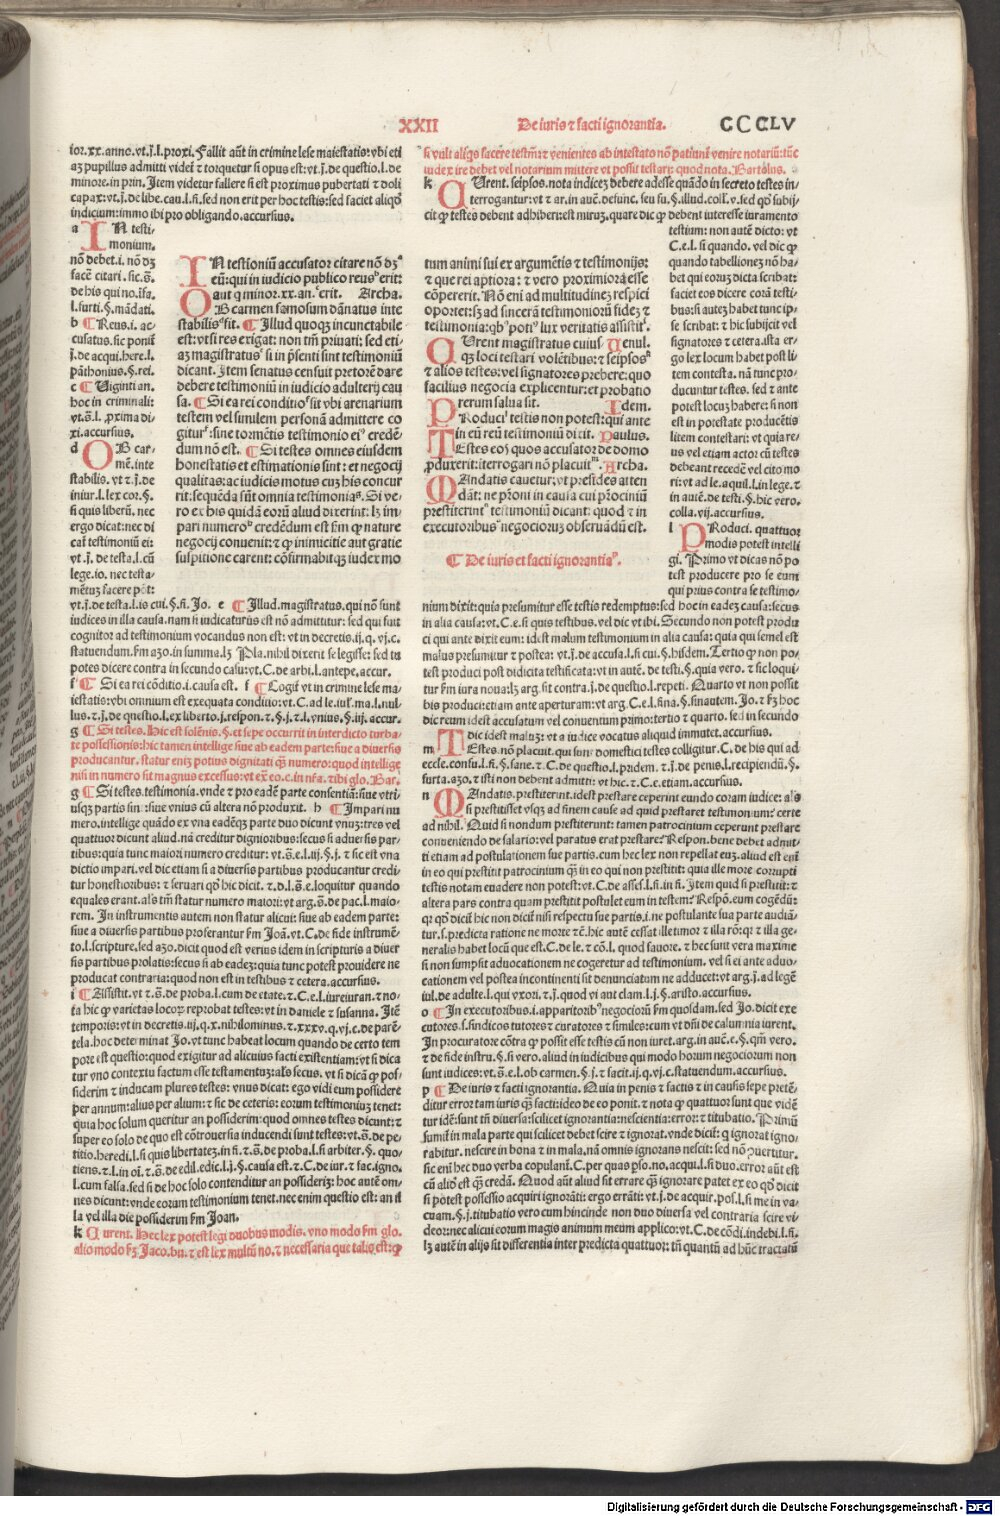 XXII De iuris ⁊ facti ignorantia. CCCLV
ior.xx.anno.vt.j.l.proxi. Fallit aūt in crimine lese maiestatis: vbi eti
az pupillus admitti videt̄ ⁊ torquetur si opus est: vt.j. de questio.l.de
minore.in prin. Item videtur fallere si est proximus pubertati ⁊ doli
capax: vt.j.de libe.cau.l.fi. sed non erit per hoc testis: sed faciet aliqd̄
indicium: immo ibi pro obligando. accursius.
a IN testi-
monium.
nō debet.i. nō dz
facē citari. sic.s̄.
de his qui no.ifa.
l.furti.§.mādati.
b ¶ Reus.i. ac-
cusatus. sic poniť
j. de acqui.here.l.
pāthonius.§.rei.
c ¶ Viginti an.
hoc in criminali:
vt.s̄.l. proxima di-
xi. accursius.
d OB car-
mē.inte
stabilis. vt ⁊.j. de
iniur.l.lex cor.§.
si quis liberū. nec
ergo dicat: nec di
cat̄ testimoniū ei:
vt.j. de testa.l.cū
lege.io. nec testa-
mētuz facere pōt:
IN testioniū accusator citare nō dz
eū: qui in iudicio publico reus erit:
aut q minor.xx.an. erit. Archa.
OB carmen famosum dānatus inte
stabilis fit. ¶ Illud quoqz incunctabile
est: vt si res exigat: non tm̄ priuati: sed eti-
az magistratus si in p̄senti sunt testimoniū
dicant. Item senatus censuit pretorē dare
debere testimoniū in iudicio adulterij cau
sa. ¶ Si ea rei conditio sit vbi arenarium
testem vel similem personā admittere co
gitur: sine tormētis testimonio ei credē-
dum nō est. ¶ Si testes omnes eiusdem
honestatis et estimationis sint: et negocij
qualitas: ac iudicis motus cuz his concur
rit: sequēda sūt omnia testimonia. Si ve-
ro ex his quidā eorū aliud dixerint: lz im
pari numero credēdum est fm̄ q nature
negocij conuenit: ⁊ q inimicitie aut gratie
suspitione carent: cōfirmabitqz iudex mo
vt.j.de testa.l.is cui.§.fi. Jo. e ¶ Illud.magistratus.qui nō sunt
iudices in illa causa.nam si iudicaturus est nō admittitur: sed qui fuit
cognitor ad testimonium vocandus non est: vt in decretis.iij.q.vj.c.
statuendum.fm̄ azo.in summa.lz Pla.nihil dixerit se legisse: sed tu
potes dicere contra in secundo casu: vt.C.de arbi.l.antepe.accur.
f ¶ Si ea rei cōditio.i.causa est. f ¶ Cogit̄ vt in crimine lese ma-
iestatis: vbi omnium est exequata conditio: vt.C.ad le.iul.ma.l.nul-
lus.⁊.j.de questio.l.ex liberto.j.respon.⁊.§.j.⁊.l.vnius.§.iij.accur.
g ¶ Si testes. Hic est solēnis.§.et sepe occurrit in interdicto turba-
te possessionis: hic tamen intellige siue ab eadem parte: siue a diuersis
producantur. statur enīz potius dignitati q̄ numero: quod intellige
nisi in numero sit magnus excessus: vt ex eo.c.in nr̄a.⁊ ibi glo. Bar.
g ¶ Si testes.testimonia.vnde ⁊ pro eadē parte consentiā: siue vtri-
usqz partis sin: siue vnius cū altera nō produxit. h ¶ Impari nu
mero.intellige quādo ex vna eadēqz parte duo dicunt vnuz: tres vel
quattuor dicunt aliud.nā creditur dignioribus: secus si aduersis par-
tibus: quia tunc maiori numero creditur: vt.s̄.e.l.iij.§.j.⁊ sic est vna
dictio impari.vel dic etiam si a diuersis partibus producantur credi-
tur honestioribus: ⁊ seruari qd̄ hic dicit.⁊.d.l.s̄.e.loquitur quando
equales erant.als tm̄ statur numero maiori: vt arg.s̄.de pac.l.maio-
rem. In instrumentis autem non statur alicui: siue ab eadem parte:
siue a diuersis partibus proserantur fm̄ Joā. vt.C.de fide instrumē-
to.l.scripture.sed azo.dicit quod est verius idem in scripturis a diuer
sis partibus prolatis: secus si ab eadez: quia tunc potest prouidere ne
producat contraria: quod non est in testibus ⁊ cetera.accursius.
i ¶ Assistit. vt ⁊.s̄.de proba.l.cum de etate.⁊.C.e.l.iureiuran.⁊ no-
ta hic q̄ varietas locoꝝ reprobat testes: vt in daniele ⁊ susanna. Itē
temporis: vt in decretis.iij.q.x.nihilominus.⁊.xxxv.q.vj.c.de parē-
tela. hoc determinat Jo. vt tunc habeat locum quando de certo tem
pore est questio: quod exigitur ad alicuius facti existentiam: vt si dica
tur vno contextu factum esse testamentuz: als secus. vt si dicā q̄ pos-
siderim ⁊ inducam plures testes: vnus dicat: ego vidi eum possidere
per annum: alius per alium: ⁊ sic de ceteris: eorum testimoniuz tenet:
quia hoc solum queritur an possiderim: quod omnes testes dicunt: ⁊
super eo solo de quo est cōtrouersia inducendi sunt testes: vt.s̄.de pe-
titio.heredi.l.si quis libertatez.in fi.⁊.s̄.de proba.l.si arbiter.§.quo-
tiens.⁊.l.in oī.⁊.s̄.de edil.edic.l.j.§.causa est.⁊.C.de iur.⁊ fac.igno.
l.cum falsa.sed si de hoc solo contenditur an possideriz: hoc autē om-
nes dicunt: vnde eorum testimonium tenet.nec enim questio est: an il
la vel illa die possiderim fm̄ Joan.
k Curent. Hec lex potest legi duobus modis. vno modo fm̄ glo.
alio modo fz Jaco.bu.⁊ est lex multū no.⁊ necessaria que talis est: q
si vult aliqs facere testm̄: ⁊ venientes ab intestato nō patiunt̄ venire notariū: tūc
iudex ire debet vel notarium mittere vt possit testari: quod nota. Bartolus.
k CUrent. seipsos. nota indicez debere adesse quādo in secreto testes in-
terrogantur: vt ⁊ ar.in autē.defunc. seu fu.§.illud.coll.v.sed qd̄ subij-
cit q̄ testes debent adhiberi: est miruz. quare dic q̄ debent interesse iuramento
testium: non autē dicto: vt
C.e.l. si quando. vel dic q̄
quando tabellionez nō ha-
bet qui eoruz dicta scribat:
faciet eos dicere corā testi-
bus: si autez habet tunc ip-
se scribat: ⁊ hic subijcit vel
signatores ⁊ cetera. ista er-
go lex locum habet post li-
tem contesta. nā tunc pro-
ducuntur testes. sed ⁊ ante
potest locuz habere: si non
est in potestate productis
litem contestari: vt quia re-
us vel etiam actor cū testes
debeant recedē vel cito mo
ri: vt ad le.aquil.l.in lege.⁊
in autē.de testi.§.hic vero.
colla.vij.accursius.
l PRoduci. quattuor
modis potest intelli
gi. Primo vt dicas nō po
test producere pro se eum
qui prius contra se testimo-
tum animi sui ex argumētis ⁊ testimonijs:
⁊ que rei aptiora: ⁊ vero proximiora esse
cōpererit. Nō eni ad multitudinez respici
oportet: sz ad sincerā testimoniorū fidez ⁊
testimonia: qb poti lux veritatis assistit.
CUrent magistratus cuius Uenul.
qz loci testari volētibus: ⁊ seipsos
⁊ alios testes: vel signatores prebere: quo
facilius negocia explicentur: et probatio
rerum salua sit. Idem.
PRoduci testis non potest: qui ante
in eū reū testimoniū dixit. Paulus.
TEstes eos quos accusator de domo
ꝓduxerit: iterrogari nō placuit. Archa.
MAndatis cauetur: vt presides atten
dāt: ne pr̄oni in causa cui pr̄ociniū
prestiterint testimoniū dicant: quod ⁊ in
executoribus negocioruz obseruādū est.
¶ De iuris et facti ignorantia.
nium dixit: quia presumitur esse testis redemptus: sed hoc in eadez causa: secus
in alia causa: vt.C.e.si quis testibus. vel dic vt ibi. Secundo non potest produ
ci qui ante dixit eum: idest malum testimonium in alia causa: quia qui semel est
malus presumitur ⁊ postea: vt.j.de accusa.l.si cui.§.hisdem. Tertio q̄ non po-
test produci post didicita testificata: vt in autē.de testi.§.quia vero.⁊ sic loqui-
tur fm̄ iura noua: lz arg.sit contra.j.de questio.l.repeti. Quarto vt non possit
bis produci: etiam ante aperturam: vt arg.C.e.l.fina.§.sinautem. Jo.⁊ fz hoc
dic reum idest accusatum vel conuentum primo: tertio ⁊ quarto. sed in secundo
dic idest maluz: vt a iudice vocatus aliquid immutet. accursius.
m TEstes. nō placuit. qui sunt domestici testes colligitur.C.de his qui ad
eccle.confu.l.fi.§.sane.⁊.C.de questio.l.pridem.⁊.j.de penis.l.recipiendū.§.
furta.azo.⁊ isti non debent admitti: vt hic.⁊.C.e.etiam.accursius.
n MAndatis. prestiterint. idest prestare ceperint eundo coram iudice: als
si prestitisset vsqz ad finem cause ad quid prestaret testimonium: certe
ad nihil. Quid si nondum prestiterunt: tamen patrocinium ceperunt prestare
conueniendo de salario: vel paratus erat prestare: Respon. bene debet admit-
ti etiam ad postulationem sue partis. cum hec lex non repellat euz. aliud est enī
in eo qui prestitit patrocinium q̄ in eo qui non prestitit: quia ille more corrupti
testis notam euadere non potest: vt.C.de asses.l.fi.in fi. Item quid si prestitit: ⁊
altera pars contra quam prestitit postulet eum in testem: Respō. eum cogēdū:
qr qd̄ dicit hic non dicit̄ nisi respectu sue partis.i.ne postulante sua parte audiā-
tur.s.predicta ratione ne morte ⁊ c̄. hic autē cessat ille timor ⁊ illa rō: qr ⁊ illa ge-
neralis habet locū que est.C.de le.⁊ cō.l.quod fauore.⁊ hec sunt vera maxime
si non sumpsit aduocationem ne cogeretur ad testimonium.vel si ei ante aduo-
cationem vel postea incontinenti sit denunciatum ne adducet: vt arg.j.ad legē
iul.de adulte.l.qui vxori.⁊.j.quod vi aut clam.l.j.§.aristo.accursius.
o ¶ In executoribus.i.apparitorib negociorū fm̄ quosdam.sed Jo.dicit exe
cutores.s.sindicos tutores ⁊ curatores ⁊ similes: cum vt dn̄i de calumnia iurent.
In procuratore cōtra q̄ possit esse testis cū non iuret.arg.in autē.e.§.qm̄ vero.
⁊ de fide instru.§.si vero.aliud in iudicibus qui modo horum negociorum non
sunt iudices: vt.s̄.e.l.ob carmen.§.j.⁊ facit.ij.q.vj.c.statuendum.accursius.
p ¶ De iuris ⁊ facti ignorantia. Quia in penis ⁊ factis ⁊ in causis sepe pretē-
ditur error tam iuris q̄ facti: ideo de eo ponit.⁊ nota q̄ quattuor sunt que vidē
tur idē: sunt tn̄ diuersa: scilicet ignorantia: nescientia: error: ⁊ titubatio. Primū
sumit̄ in mala parte qui scilicet debet scire ⁊ ignorat. vnde dicit̄: q ignorat igno-
rabitur. nescire in bona ⁊ in mala.nā omnis ignorans nescit: sed nō ꝯuertitur.
sic enī hec duo verba copulant̄.C.per quas pso.no.acqui.l.fi duo.error aūt est
cū aliō est q̄ credā. Quod aūt aliud sit errare q̄ ignorare patet ex eo qd̄ dicit
si potest possessio acquiri ignorāti: ergo errāti: vt.j.de acquir.pos.l.si me in va-
cuam.§.j.titubatio vero cum hincinde non duo diuersa vel contraria scire vi-
deor: nec alicui eorum magis animum meum applico: vt.C.de cōdi.indebi.l.fi.
lz autē in alijs sit differentia inter predicta quattuor: tn̄ quantū ad hūc tractatū
Digitalisierung gefördert durch die Deutsche Forschungsgemeinschaft - DFG